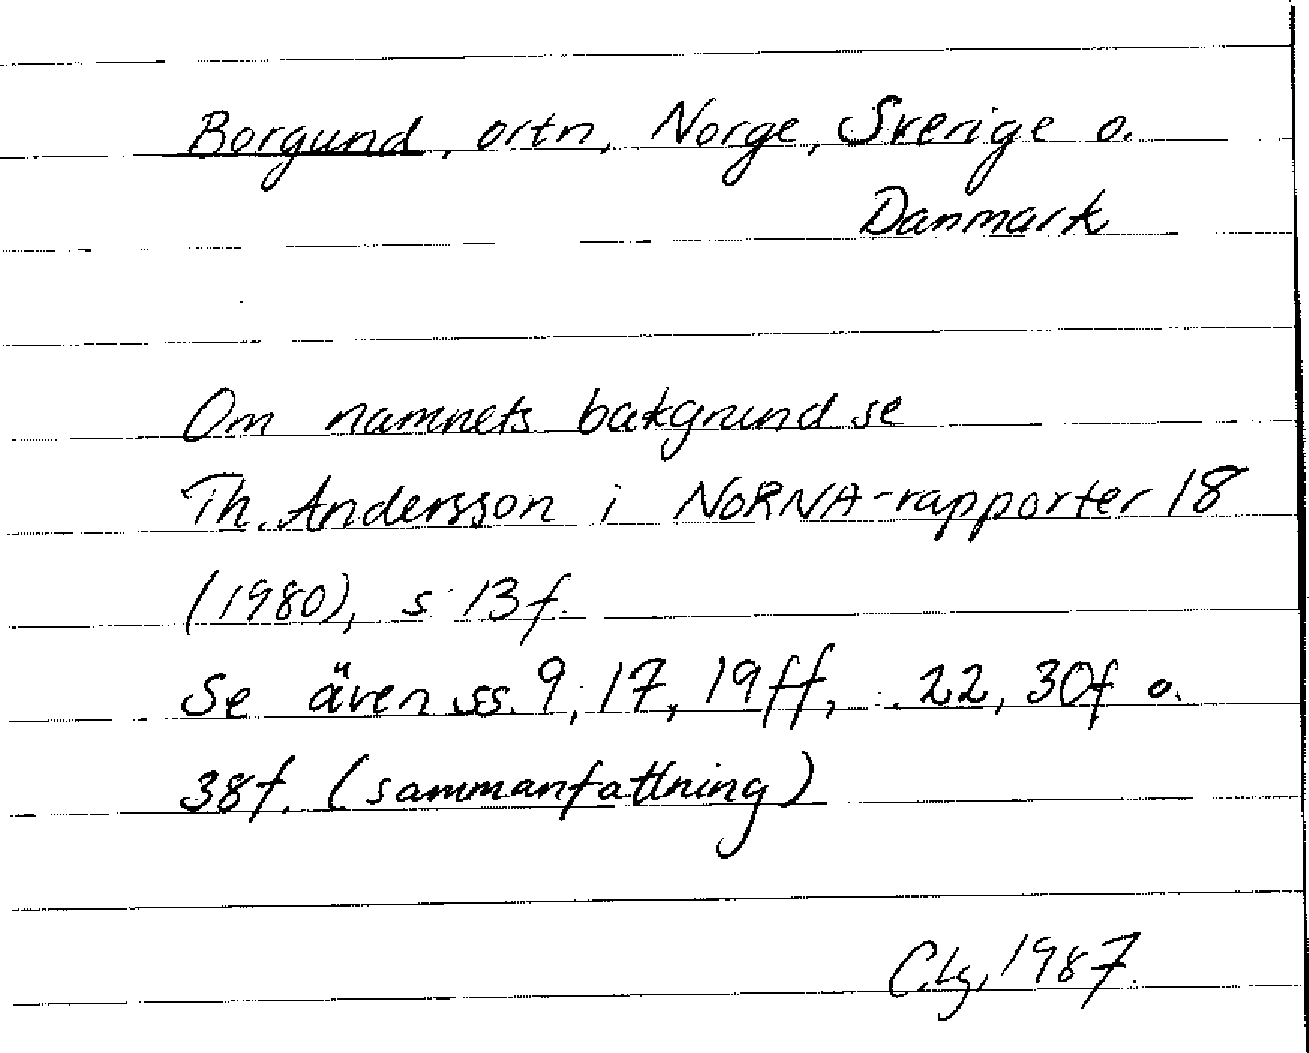 Borgund, ortn, Norge, Sverige o.
Danmark
Om namnets bakgrund se
Th. Andersson i NORNA-rapporter 18
(1980), s 13f.
Se även ss. 9, 17, 19ff, 22, 30f o.
38f. (sammanfattning)
C.Lg, 1987.